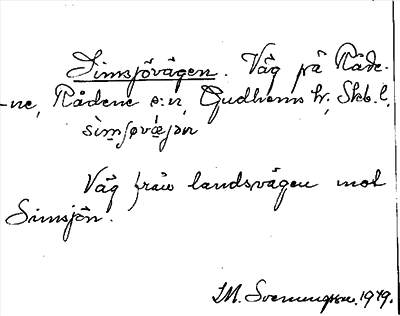 Simsjövägen. Väg på Råde-
-ne, Rådene s:n, Gudhems hr, Skb. l.
sìmʃøvæ̀jən
Väg från landsvägen mot
Simsjön.
I.M. Svenungsson. 1949.